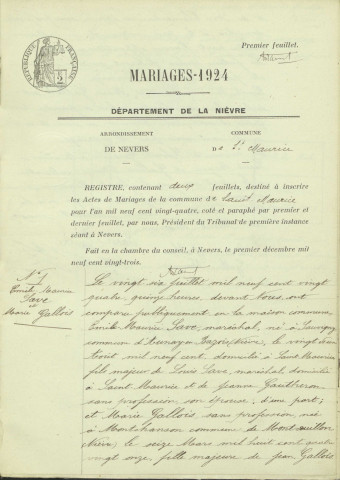 Premier feuillet.
RÉPUBLIQUE FRANÇAISE
MARIAGES-1924
DÉPARTEMENT DE LA NIÈVRE
ARRONDISSEMENT
COMMUNE
DE NEVERS
DE St Maurice
REGISTRE, contenant deux feuillets, destiné à inscrire
les Actes de Mariages de la commune de Saint Maurice
pour l'an mil neuf cent vingt-quatre, coté et paraphé par premier et
dernier feuillet, par nous, Président du Tribunal de première instance
séant à Nevers.
Fait en la chambre du conseil, à Nevers, le premier décembre mil
neuf cent vingt-trois.
N° 1
Emile Maurice
Save
et
Marie Gallois
Le vingt six juillet mil neuf cent vingt
quatre, quinze heures, devant nous, ont
comparu publiquement en la maison commune
Emile Maurice Save, maréchal, né à
commune d'Aunay en Bazois (Nièvre), le vingt
août mil neuf cent, domicilié à Saint Maurice
fils majeur de Louis Save, maréchal, domicilié
à Saint Maurice et de Jeanne Gautheron
sans profession, son épouse, d'une part;
et Marie Gallois, sans profession, née
à Montchanson commune de Montreuillon
(Nièvre) le seize Mars mil huit cent quatre
vingt onze, fille majeure de Jean Gallois